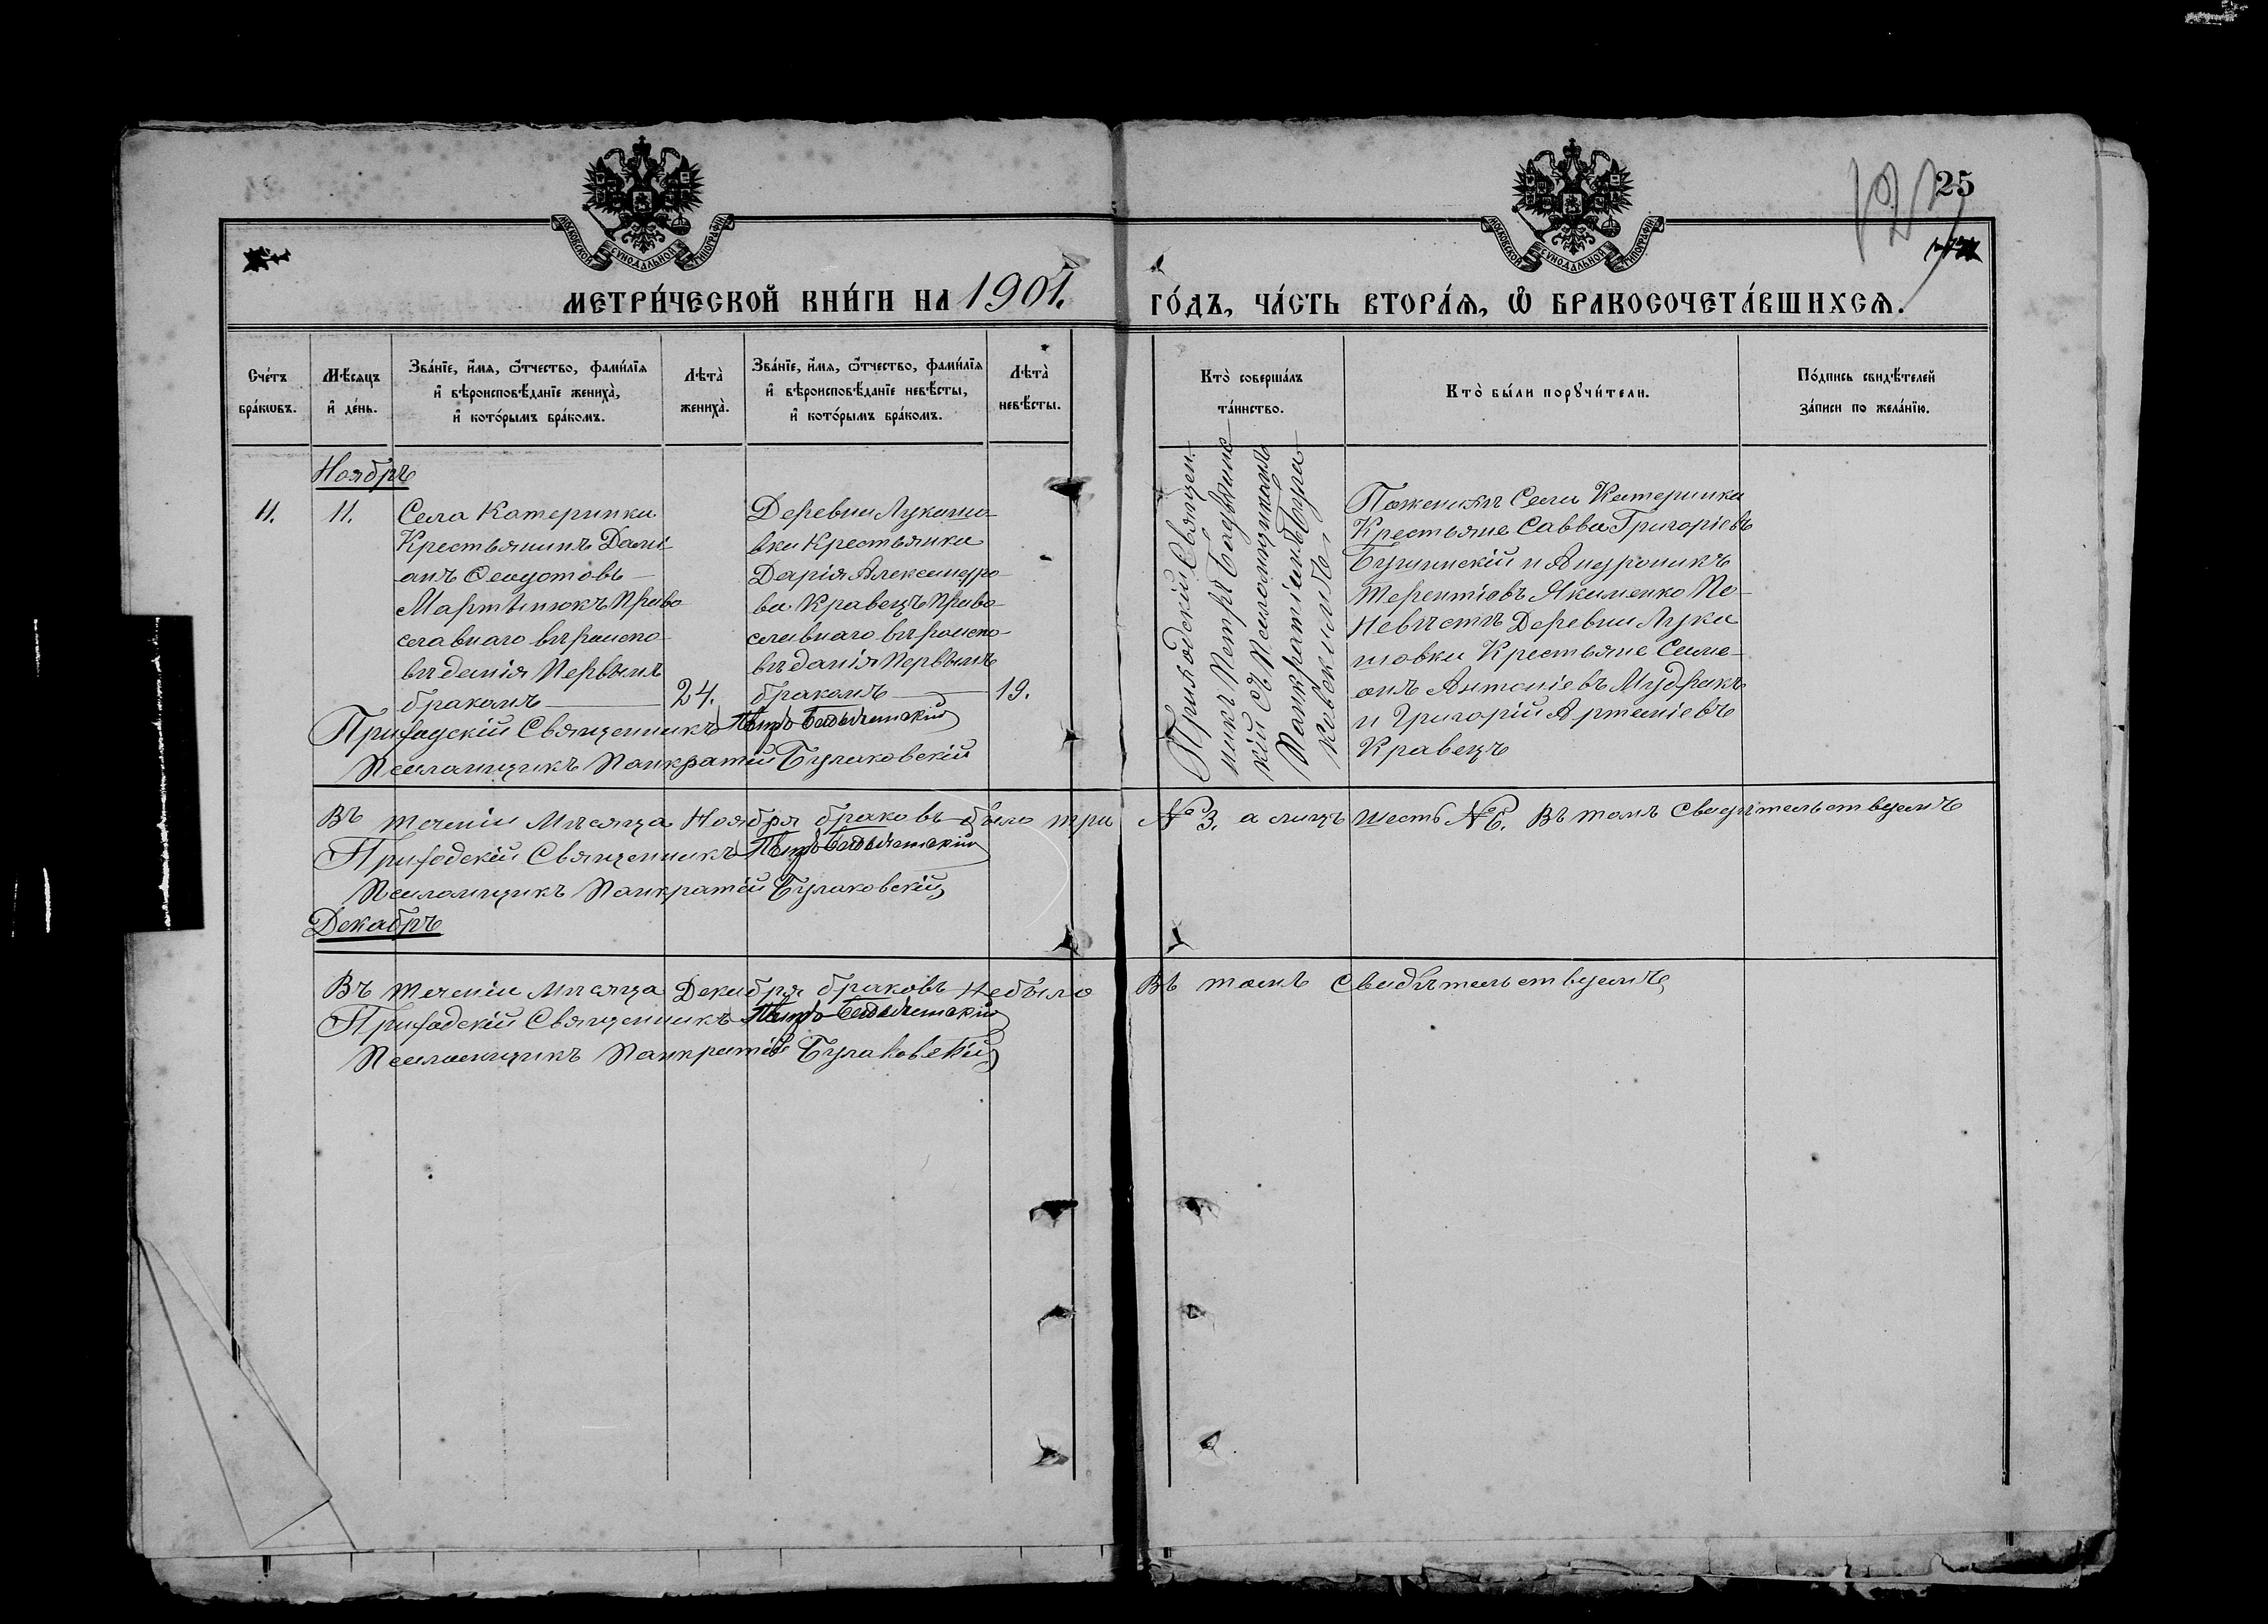 25
МОСКОВСКОЙ СѴНОДАЛЬНОЙ ТИПОГРАФІИ
МОСКОВСКОЙ СѴНОДАЛЬНОЙ ТИПОГРАФІИ
МЕТРИ́ЧЕСКОЙ КНИ́ГИ НА 1901. ГО́ДЪ, ЧА́СТЬ ВТОРА́Ѧ, Ѽ БРАКОСОЧЕТА́ВШИХСѦ.
Сче́тъ бра́кѡвъ.
Мѣ́сяцъ и҆ де́нь.
Зва́нїе, и҆́мя, ѻ҆́тчество, фами́лїя
и҆ вѣроисповѣ́данїе жениха̀,
и҆ кото́рымъ бра́комъ.
Лѣта̀ жениха̀.
Зва́нїе, и҆́мя, ѻ҆́тчество, фами́лїя
и҆ вѣроисповѣ́данїе невѣ́сты,
и҆ кото́рымъ бра́комъ.
Лѣта̀ невѣ́сты.
Кто̀ соверша́лъ та́инство.
Кто̀ бы́ли порꙋчи́тели.
По́дпись свидѣ́телей
за́писи по жела́нїю.
Ноябрь
11.
11.
Села Катеринки
Крестьянинъ Дамі-
анъ Ѳеодотовъ
Мартынюкъ Право-
славнаго вѣроиспо-
вѣданія Первымъ
бракомъ
24.
Деревни Лукашо-
вки Крестьянка
Дарія Александро-
ва Кравецъ Право-
славнаго вѣроиспо-
вѣданія Первымъ
бракомъ
19.
Приходскій Священ-
никъ Петръ
кій съ Псаломщикомъ
Панкратіемъ Була-
ковскимъ
По женихѣ Села Катеринки
Крестьяне Савва Григоріевъ
и Андроникъ
Терентіевъ Якименко По
Невѣстѣ Деревни Лука
шовки Крестьяне Симе-
онъ Антоніевъ Мудракъ
и Григорій Артеміевъ
Кравецъ
Приходскій Священникъ Петръ
Псаломщикъ Панкратій Булаковскій
Въ теченіи Мѣсяца Ноября браковъ было три № 3. а лицъ шесть № 6. Въ томъ Свидѣтельствуемъ
Приходскій Священникъ Петръ
Псаломщикъ Панкратій Булаковскій
Декабрь
Въ теченіи Мѣсяца Декабря браковъ Небыло Въ томъ Свидѣтельствуемъ
Приходскій Священникъ Петръ
Псаломщикъ Панкратій Булаковскій